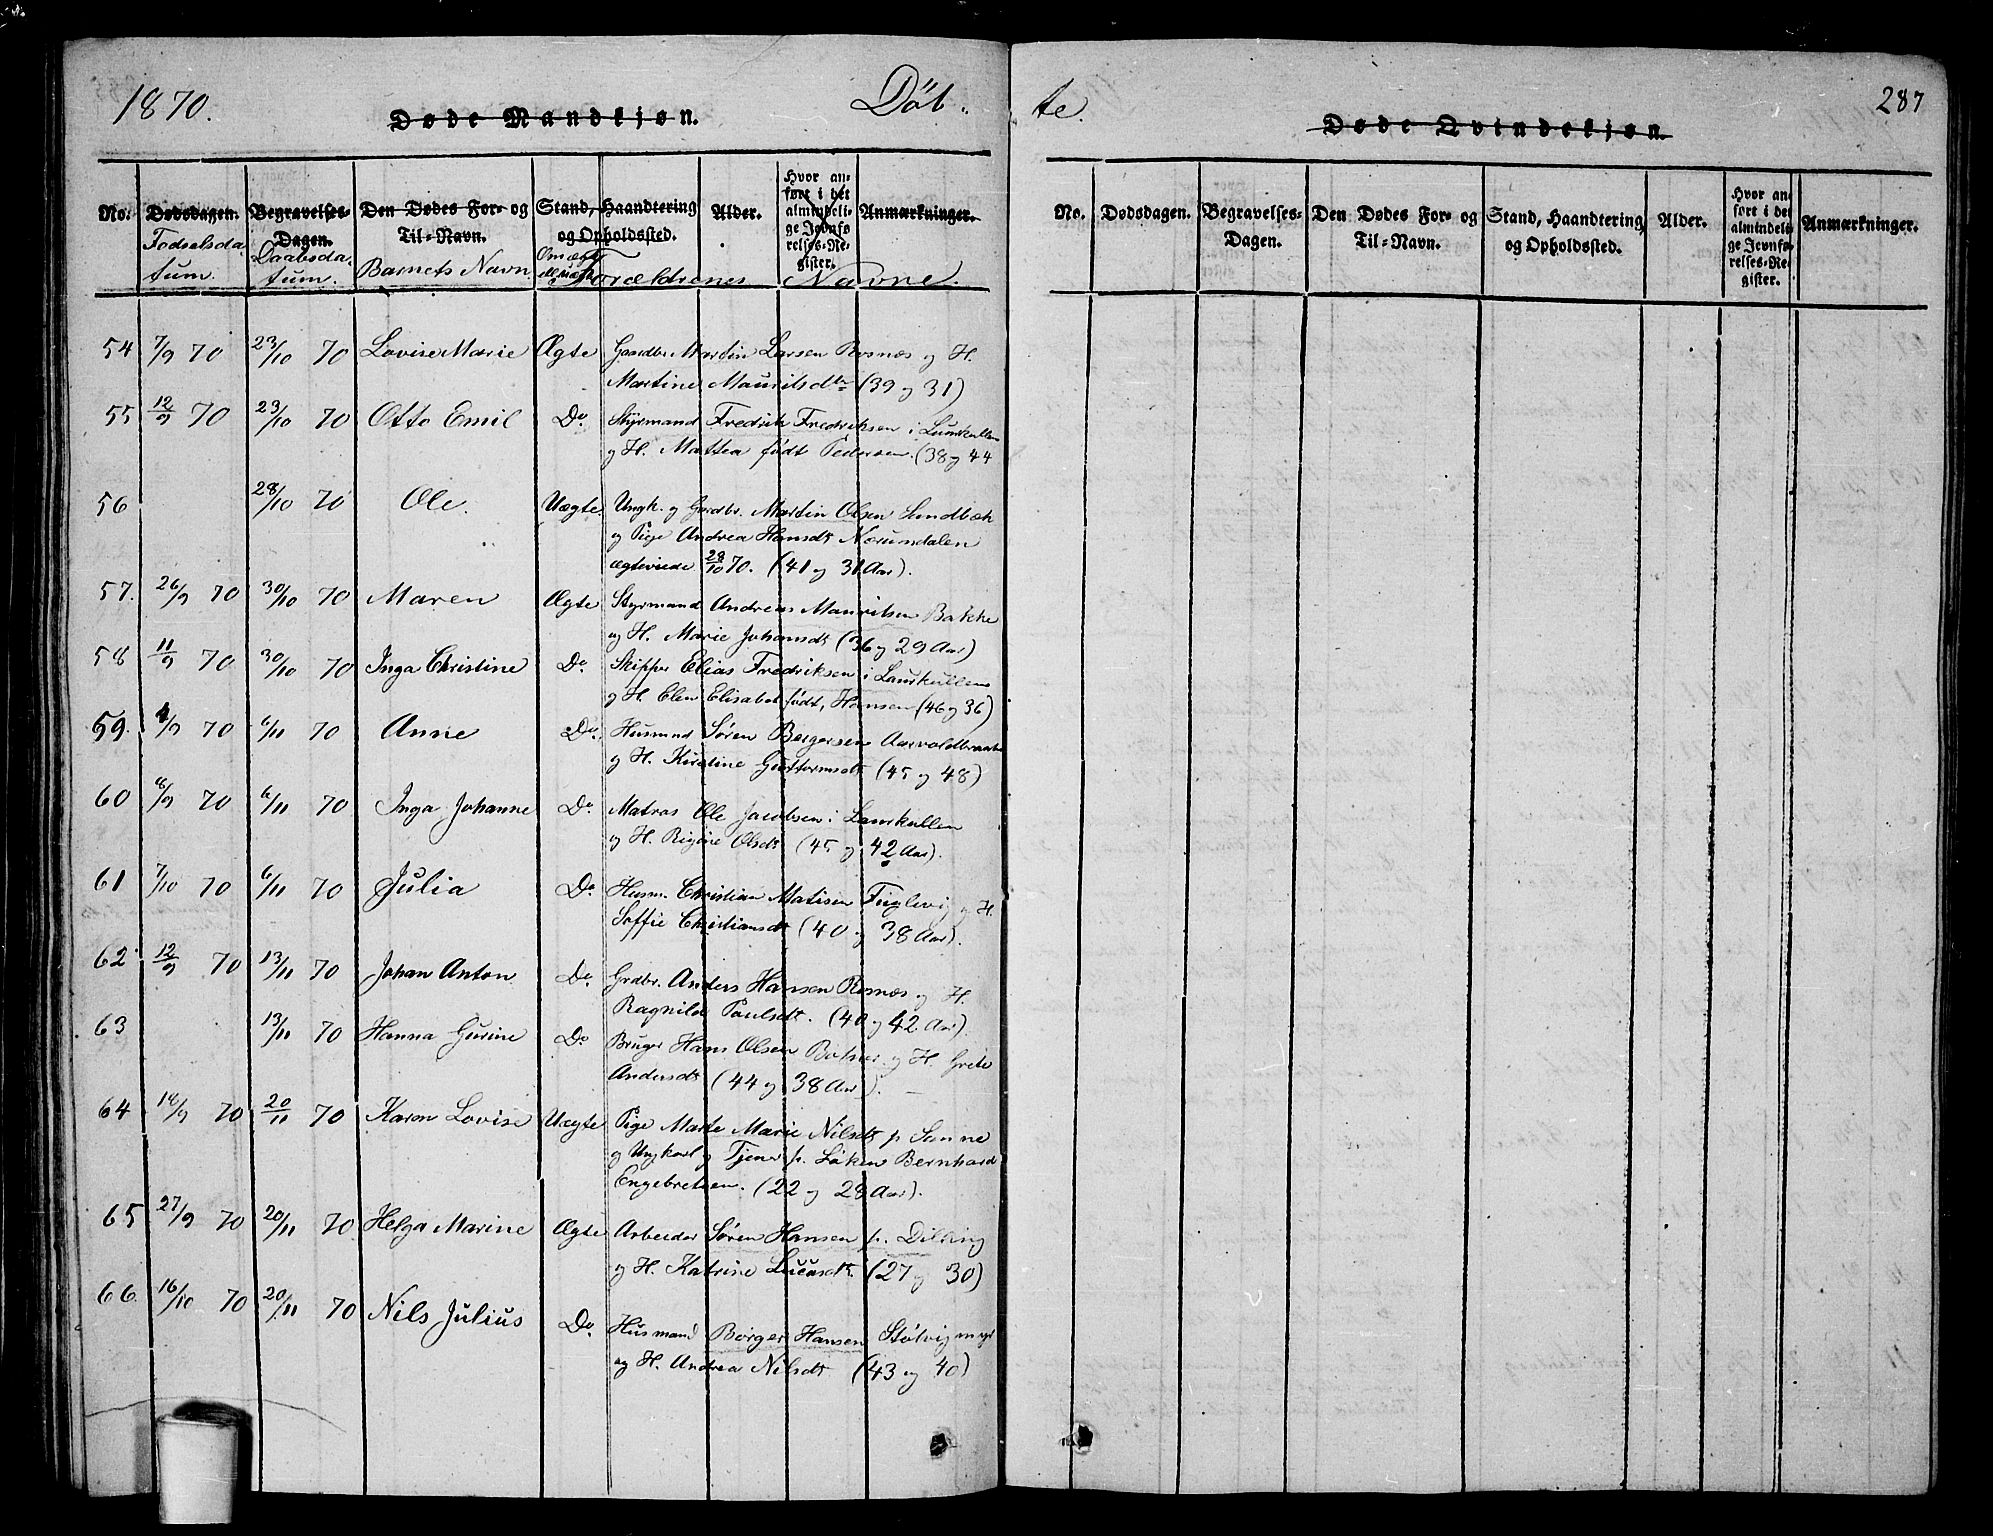 1870.
Døb-
te.
287
Døde Mandkjøn.
Døde Qvindekjøn.
No. Dødsdagen. Begravelses-Dagen. Den Dødes For- og Til-Navn. Stand, Haandtering og Opholdssted. Alder. Hvor anført i det almindelige Jevnførelses-Register. Anmærkninger.
Fødselsdatum. Daabsdatum. Barnets Navn. Om ægte Forældrenes Navne.
No. Dødsdagen. Begravelses-Dagen. Den Dødes For- og Til-Navn. Stand, Haandtering og Opholdssted. Alder. Hvor anført i det almindelige Jevnførelses-Register. Anmærkninger.
54 7/9 70 23/10 70 Lovise Marie Ægte Gaardbr. Martin Larsen Rosnæs og H.
Martine Mauritsdtr (39 og 31)
55 12/9 70 23/10 70 Otto Emil Do. Styrmand Fredrik Fredriksen i Laurkullen
og H. Mattea født Pedersen. (38 og 44
56 28/10 70 Ole. Uægte. Ungk. og Gaardbr. Martin Olsen Sundbæk
og Pige Andrea Hansdt
ægteviede 28/10 70. (41 og 31 Aar).
57. 26/9 70 30/10 70 Maren Ægte Styrmand Andreas Mauritsen Bakke
og H. Marie Johansdt (36 og 29 Aar)
58 11/9 70 30/10 70 Inga Christine Do. Skipper Elias Fredriksen i Laurkullen
og H. Elen Elisabet født, Hansen (46 og 36)
59. 4/9 70 6/11 70 Anne Do. Husmand Søren Børgersen
og H. Kirstine Guttormsdt (45 og 48)
60 8/9 70 6/11 70 Inga Johanne Do. Matros Ole Jacobsen i Laurkullen
og H. Olsdt (45 og 42 Aar).
61 7/10 70 6/11 70 Julia Do. Husm. Christian Matisen Fuglevig og H.
Soffie Christiansdt (40 og 38 Aar).
62 12/9 70 13/11 70 Johan Anton Do. Grdbr. Anders Hansen Rosnæs og H.
Ragnild Paulsdt. (40 og 42 Aar).
63 13/11 70 Hanna Gurine Do. Bruger Hans Olsen og H. Grete
Andersdt (44 og 38 Aar).
64 18/9 70 20/11 70 Karen Lovise Uægte Pige Marte Marie Nilsdt p. Sanne
og Ungkarl og Tjener p. Løken Bernhard
Engebretsen. (22 og 28 Aar).
65 27/9 70 20/11 70 Helga Marine Ægte Arbeider Søren Hansen p. Dilling
og H. Katrine Lucasdt. (27 og 30)
66. 16/10 70 20/11 70 Nils Julius Do. Husmand Børger Hansen Støtvigmyr
og H. Andrea Nilsdt (43 og 40)